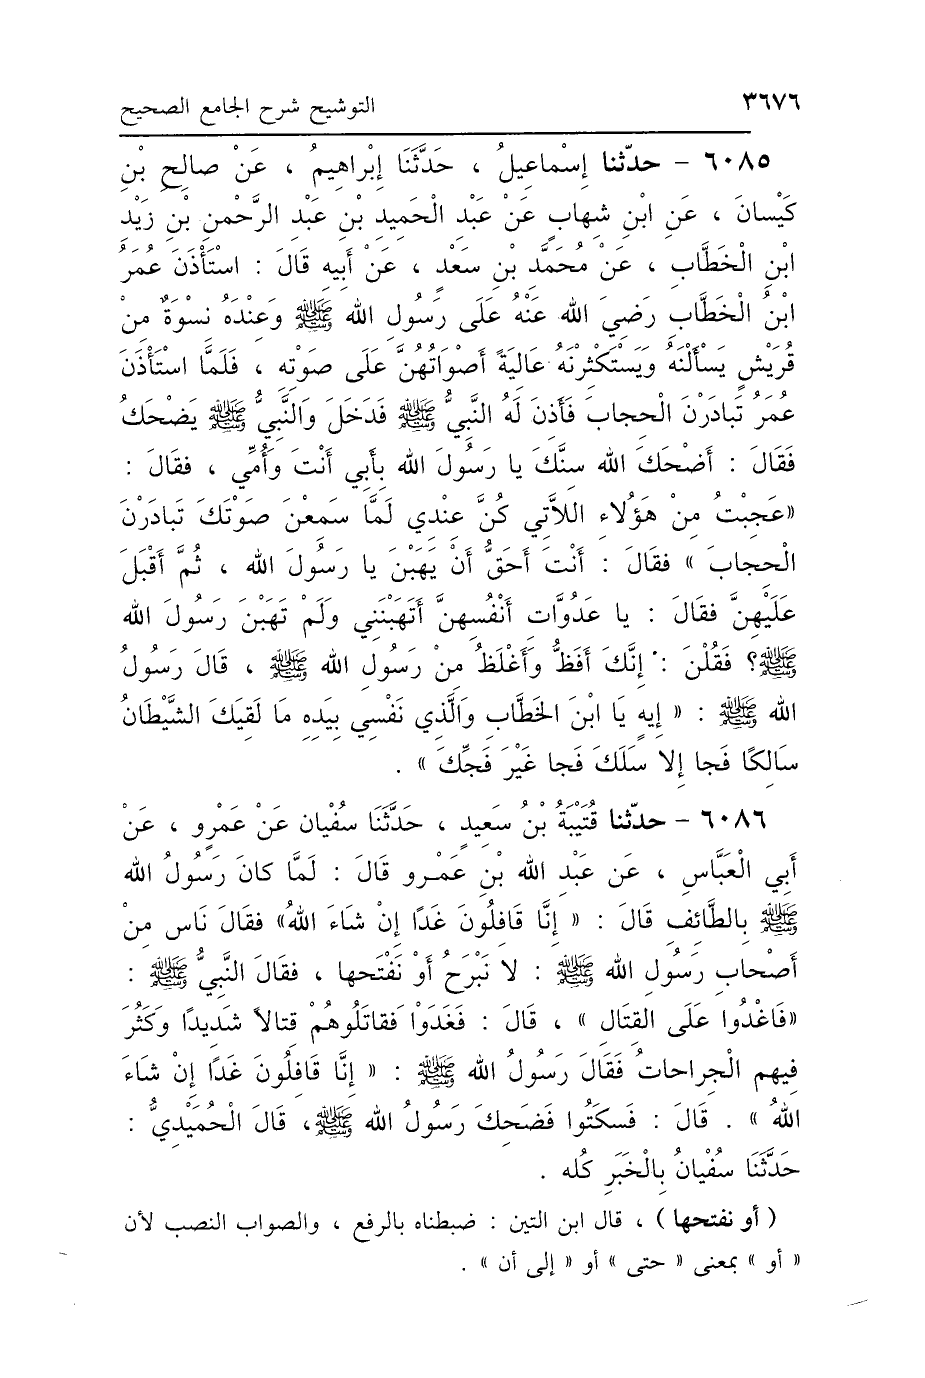 ٣٦٧٦ التوشيح شرح الجامع الصحيح
٦٠٨٥ – حدّثنا إِسْماعيلُ ، حَدَّثَنَا إِبْراهيمُ ، عَنْ صالحِ بْنِ
كَيْسانَ ، عَنِ ابْنِ شهابٍ عَنْ عَبْدِ الْحَميدِ بْنِ عَبْدِ الرَّحْمنِ بْنِ زَيْدِ
ابْنِ الْخَطَّابِ ، عَنْ مُحَمَّدِ بْنِ سَعْدٍ ، عَنْ أَبيهِ قَالَ : استَأْذَنَ عُمَرُ
ابْنُ الْخَطَّابِ رَضِيَ الله عَنْهُ عَلَى رَسُولِ الله ﷺ وَعنْدَهُ نسْوَةٌ منْ
قُرَيْشٍ يَسْأَلْنَهُ وَيَسْتَكْثِرْنَهُ عَالِيَةً أَصْوَاتُهُنَّ عَلَى صَوْتِهِ ، فَلَمَّا استَأْذَنَ
عُمَرُ تَبادَرْنَ الْحجابَ فَأَذنَ لَهُ النَّبيُّ ﷺ فَدَخَلَ وَالنَّبيُّ ﷺ يَضْحَكُ
فَقَالَ : أَضْحَكَ الله سنَّكَ يا رَسُولَ الله بأَبي أَنْتَ وَأُمِّي ، فقَالَ :
«عَجبْتُ منْ هَؤُلاءِ اللاَّتي كُنَّ عنْدي لَمَّا سَمعْنَ صَوْتَكَ تَبادَرْنَ
الْحجابَ » فقَالَ : أَنْتَ أَحَقُّ أَنْ يَهَبْنَ يا رَسُولَ الله ، ثُمَّ أَقْبَلَ
عَلَيْهِنَّ فقَالَ : يا عَدُوَّات أَنْفُسهنَّ أَتَهَبْنَني ولَمْ تَهَبْنَ رَسُولَ الله
ﷺ؟ فَقُلْنَ : إِنَّكَ أَفَظُّ وَأَغْلَظُ منْ رَسُول الله ﷺ ، قَالَ رَسُولُ
الله ﷺ : « إِيهٍ يَا ابْنَ الخَطَّاب وَالَّذي نَفْسي بيَده مَا لَقيَكَ الشَّيْطَانُ
سَالِكًا فَجا إِلا سَلَكَ فَجا غَيْرَ فَجِّكَ » .
٦٠٨٦ – حدّثنا قُتَيْبَةُ بْنُ سَعيدٍ ، حَدَّثَنَا سُفْيان عَنْ عَمْرٍو ، عَنْ
أَبي الْعَبَّاسِ ، عَن عَبْدِ الله بْنِ عَمْرو قَالَ : لَمَّا كانَ رَسُولُ الله
ﷺ بالطَّائف قَالَ : « إِنَّا قَافلُونَ غَدًا إِنْ شَاءَ اللهُ» فقَالَ نَاس منْ
أَصْحابِ رَسُولِ الله ﷺ : لا نَبْرَحُ أَوْ نَفْتَحها ، فقَالَ النَّبيُّ ﷺ :
«فَاغْدُوا عَلَى القتَال » ، قَالَ : فَغَدَوْا فَقاتَلُوهُمْ قتالاً شَديدًا وَكَثُرَ
فيهم الْجراحاتُ فَقَالَ رَسُولُ الله ﷺ : « إِنَّا قَافلُونَ غَدًا إِنْ شَاءَ
اللهُ » . قَالَ : فَسكتُوا فَضَحكَ رَسُولُ الله ﷺ، قَالَ الْحُمَيْديُّ :
حَدَّثَنَا سُفْيانُ بالْخَبَرِ كُله .
( أو نفتحها ) ، قال ابن التين : ضبطناه بالرفع ، والصواب النصب لأن
« أو » بمعنى « حتى » أو « إلى أن » .